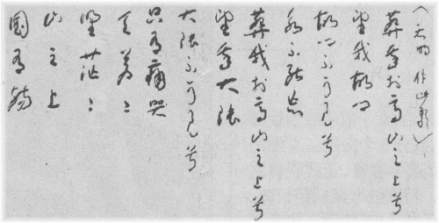 〈天明作此歌〉
葬我於高山之上兮
望我故鄉
故鄉不可見兮
永不能忘
葬我於高山之上兮
望我大陸
大陸不可見兮
只有痛哭
天蒼〻
野茫〻
山之上
國有殤